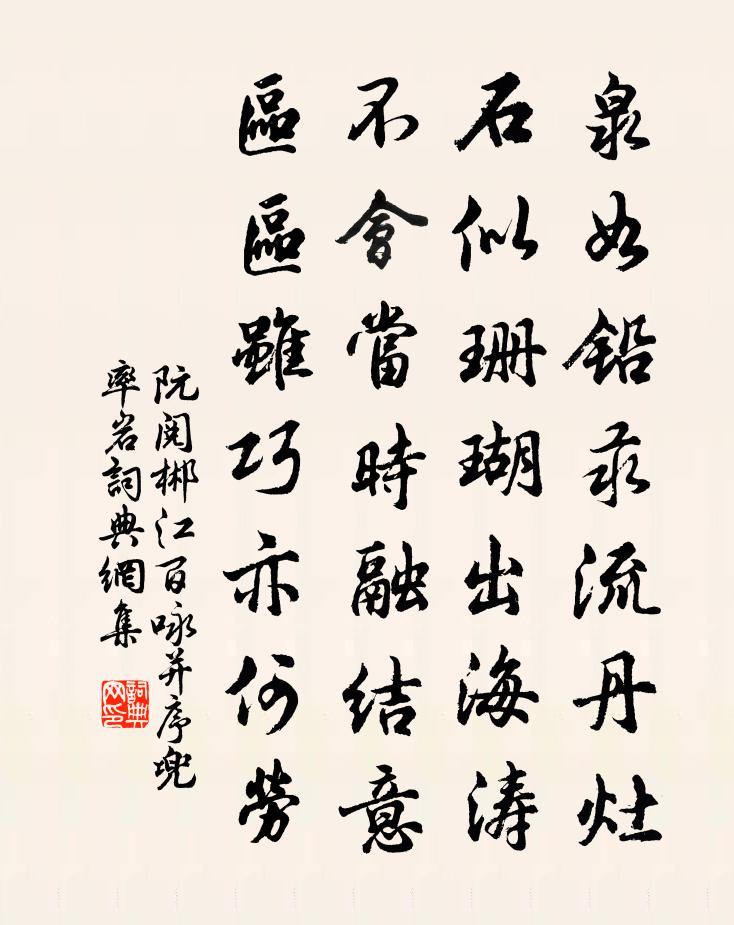 泉如鉛汞流丹灶
石似珊瑚出海濤
不會當時融結意
區區雖巧亦何勞
阮閱郴江百咏并序兜
率岩詞典網集
詞典网印